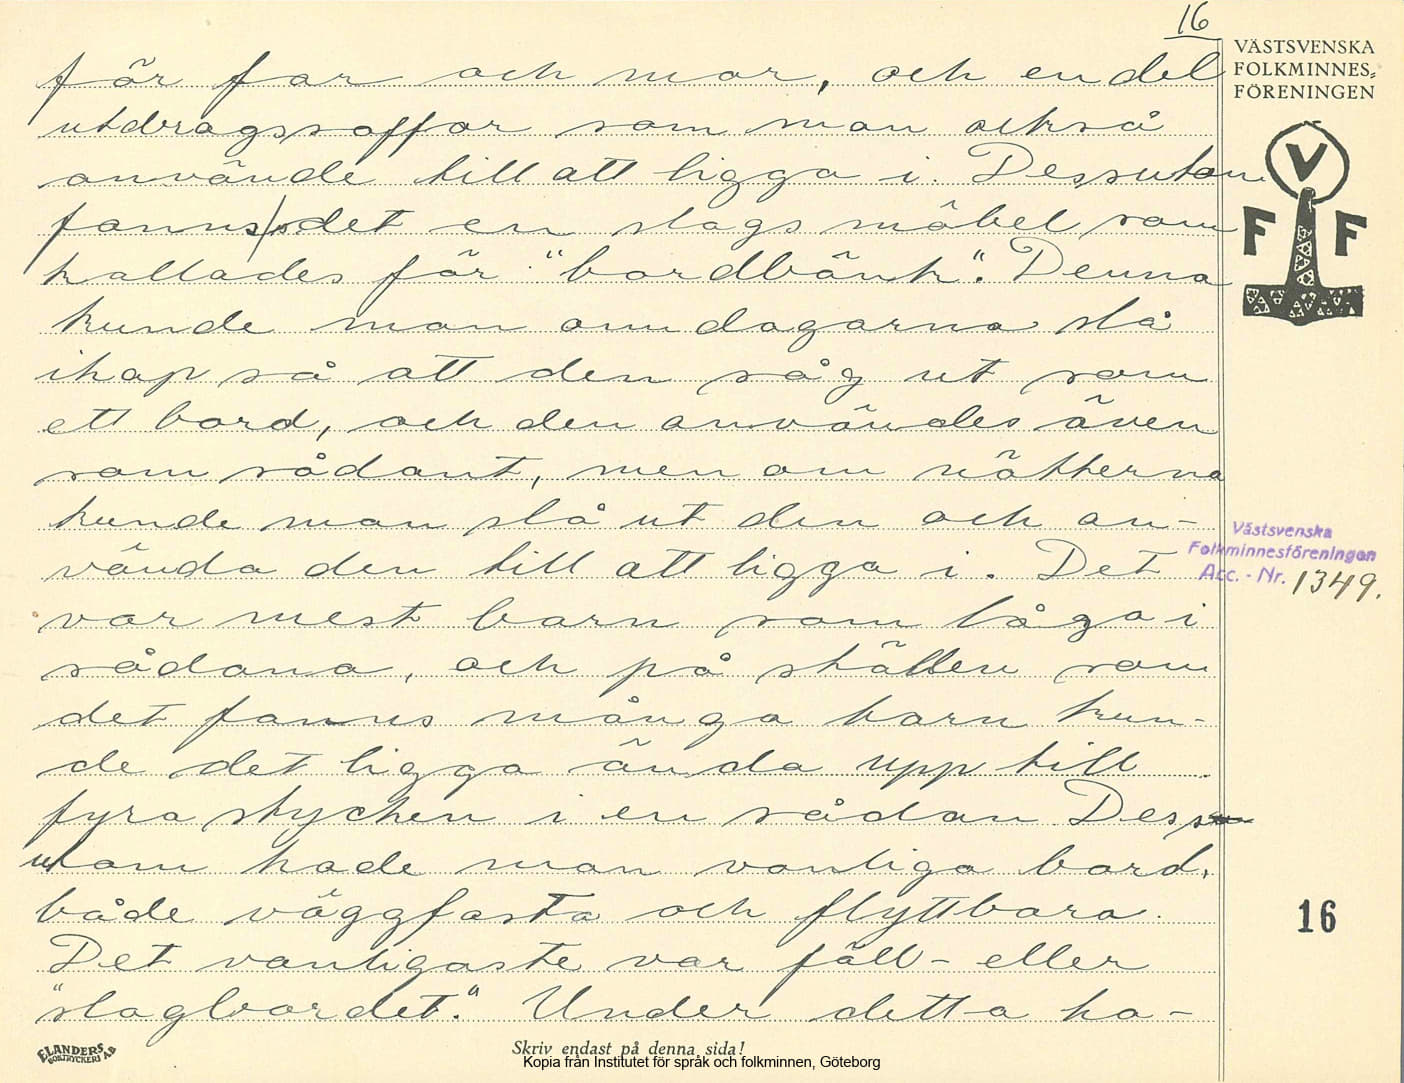 16
för far och mor, och en del
utdragssoffor som man också
använde till att ligga i. Dessutom
fanns det en slags möbel som
kallades för "bordbänk". Denna
kunde man om dagarna slå
ihop så att den såg ut som
ett bord, och den användes även
som sådant, men om nätterna
kunde man slå ut den och an-
vända den till att ligga i. Det
var mest barn som låga i
sådana, och på ställen som
det fanns många barn kun-
de det ligga ända upp till
fyra stycken i en sådan. Dess
utom hade man vanliga bord,
både väggfasta och flyttbara.
Det vanligaste var fäll- eller
"slagbordet." Under detta ha-
VÄSTSVENSKA
FOLKMINNES-
FÖRENINGEN
V
F F
Västsvenska
Folkminnesföreningen
Acc. - Nr. 1349.
16
ELANDERS
BOKTRYCKERI AB
Skriv endast på denna sida!
Kopia från Institutet för språk och folkminnen, Göteborg